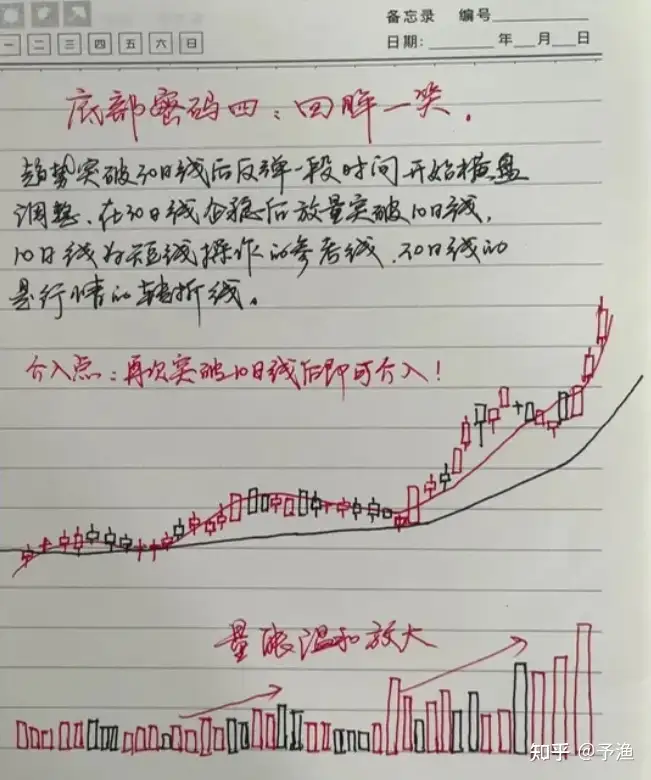 备忘录 编号
一 二 三 四 五 六 日
日期: 年 月 日
底部密码四：回眸一笑.
趋势突破30日线后反弹一段时间开始横盘
调整、在30日线企稳后放量突破10日线,
10日线为短线操作的参考线、30日线的
是行情的转折线。
介入点：再次突破10日线后即可介入！
量能温和放大
知乎 @予渔